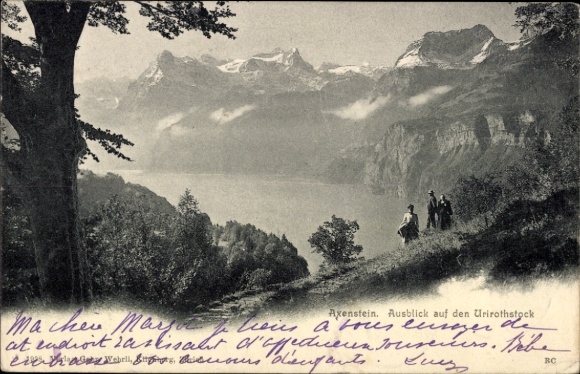 Axenstein. Ausblick auf den Urirothstock
Ma chère Margot je tiens à vous envoyer de
cet endroit ravissant d'affectueux souvenirs. Bébé
embrasse vos amours d'enfants. Lucy
Verlag Gebr. Wehrli, Kilchberg, Zürich